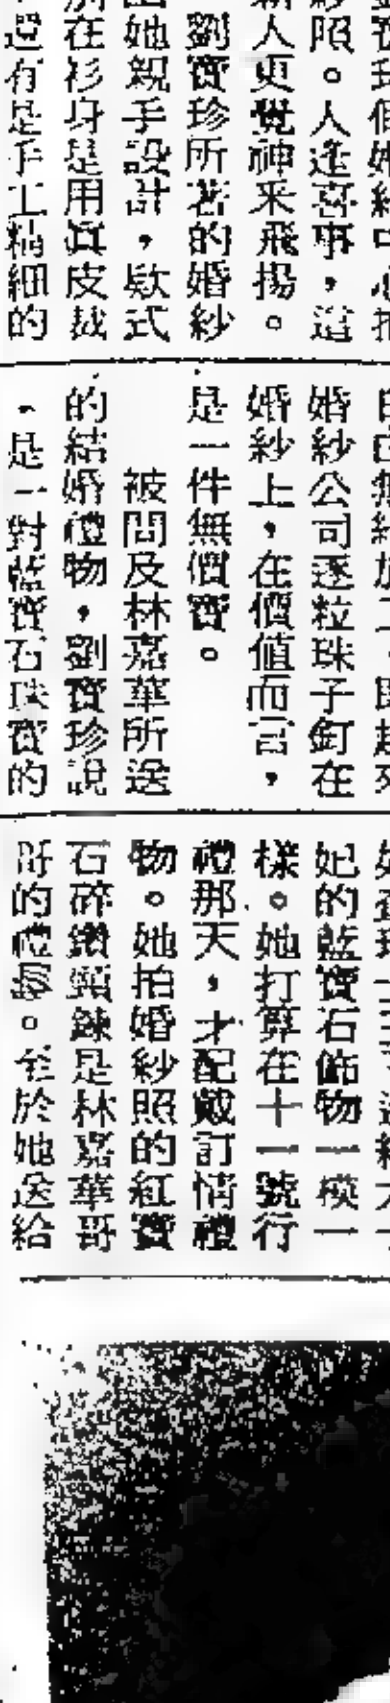 紗照。人逢喜事，這
新人更覺神采飛揚。
劉寶珍所著的婚紗
她親手設計，款式
在衫身是用真皮裁
還有是手工精細的
婚紗公司逐粒珠子釘在
婚紗上，在價值而言，
是一件無價寶。
被問及林嘉華所送
的結婚禮物，劉寶珍說
，是一對藍寶石珠寶的
妃的藍寶石飾物一模一
樣。她打算在十一號行
禮那天，才配戴訂情禮
物。她拍婚紗照的紅寶
石碎鑽頸鍊是林嘉華哥
哥的禮。至於她送給